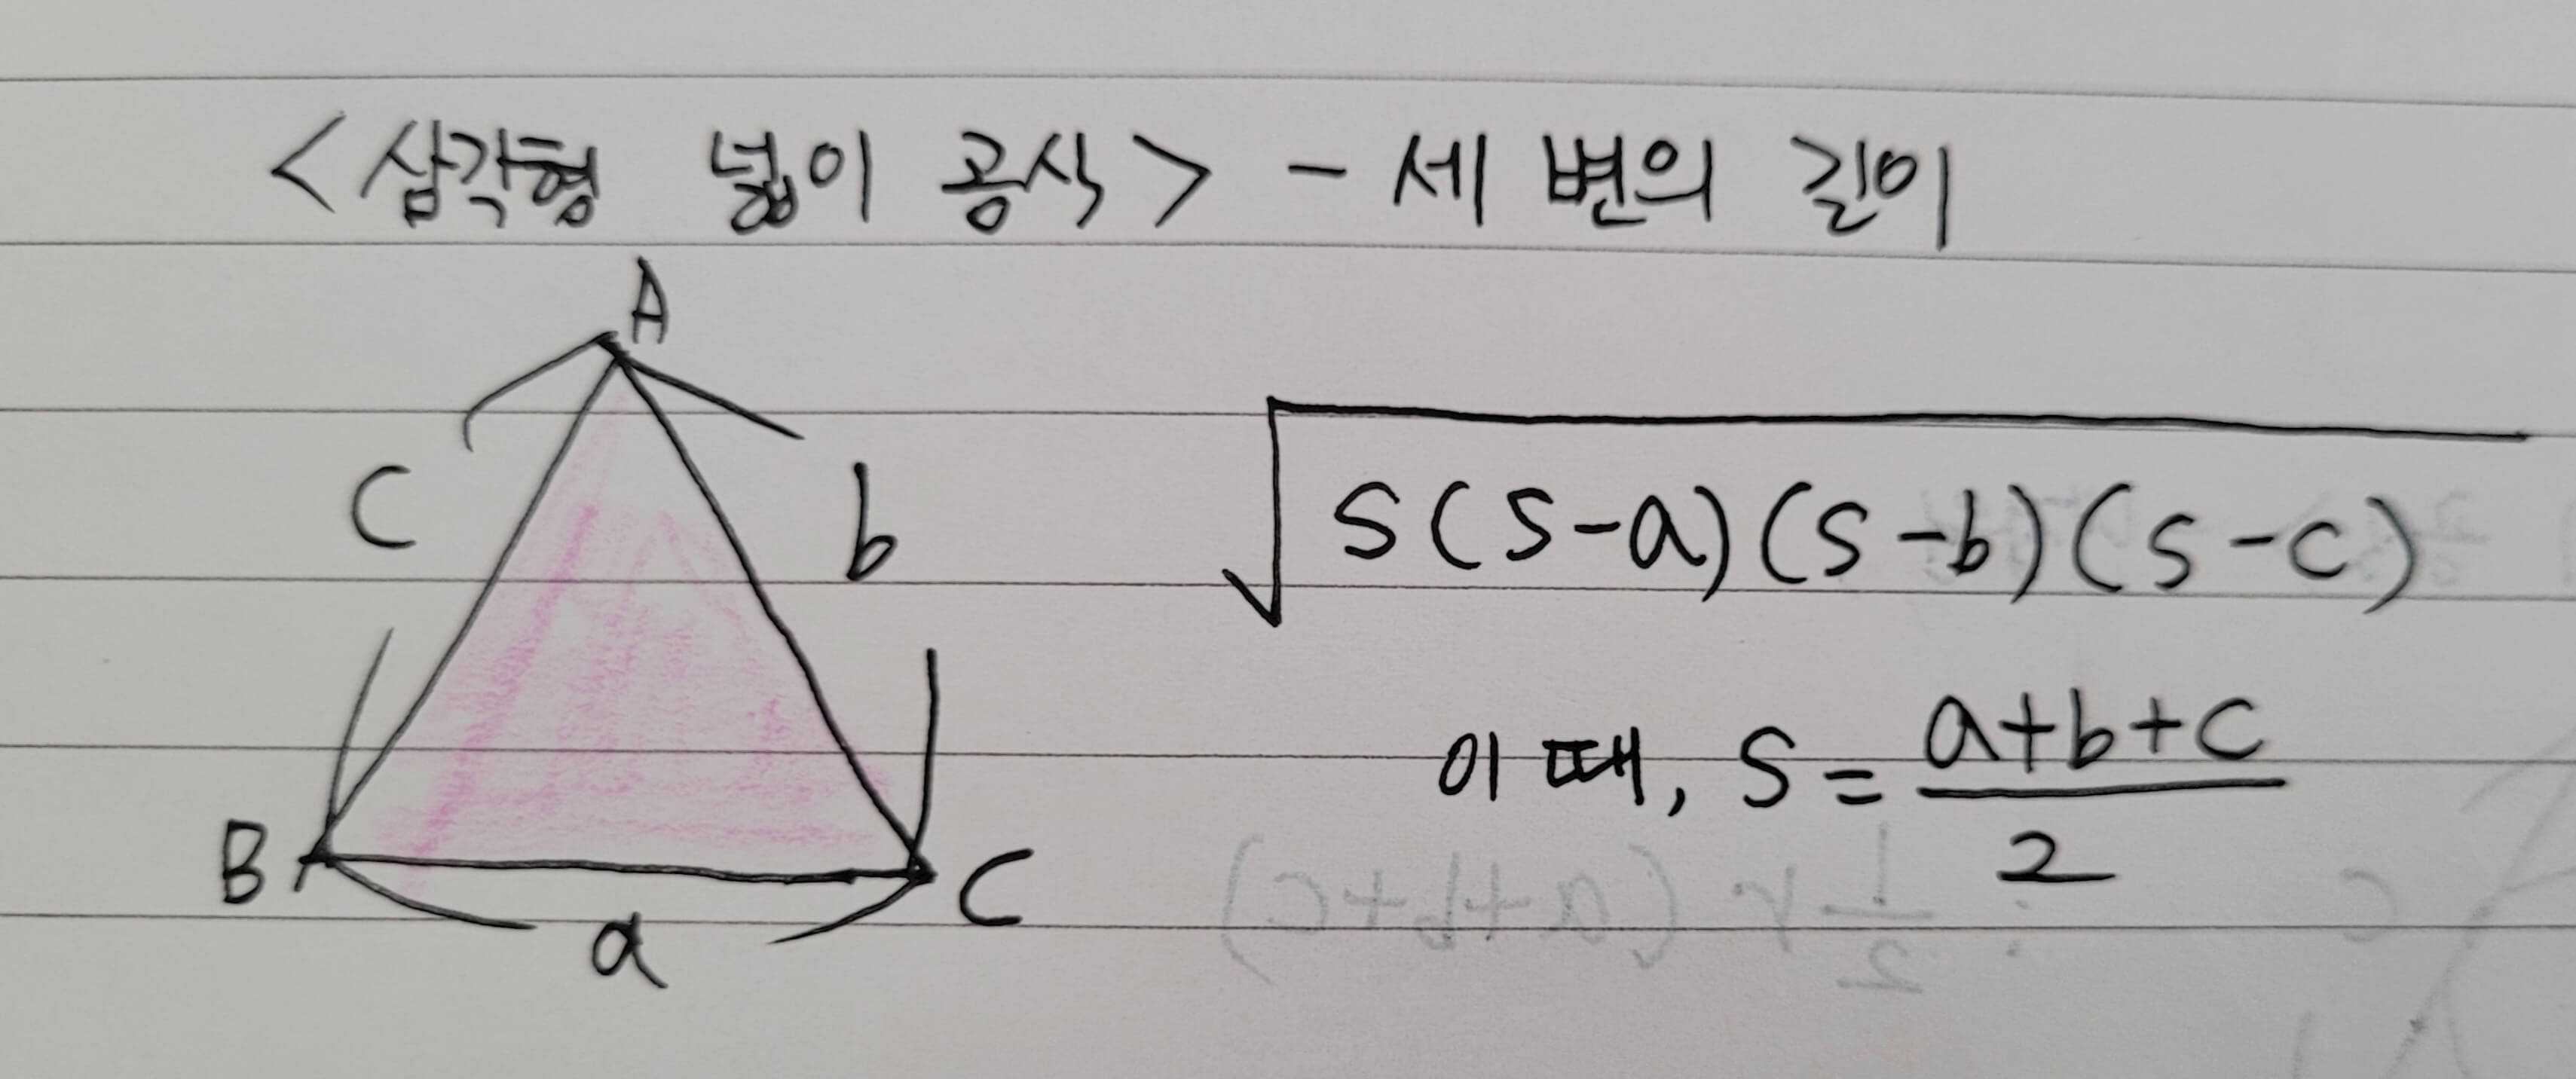 <삼각형 넓이 공식> - 세 변의 길이
A
c
b
√s(s-a)(s-b)(s-c)
이때, s = a+b+c / 2
B
a
C